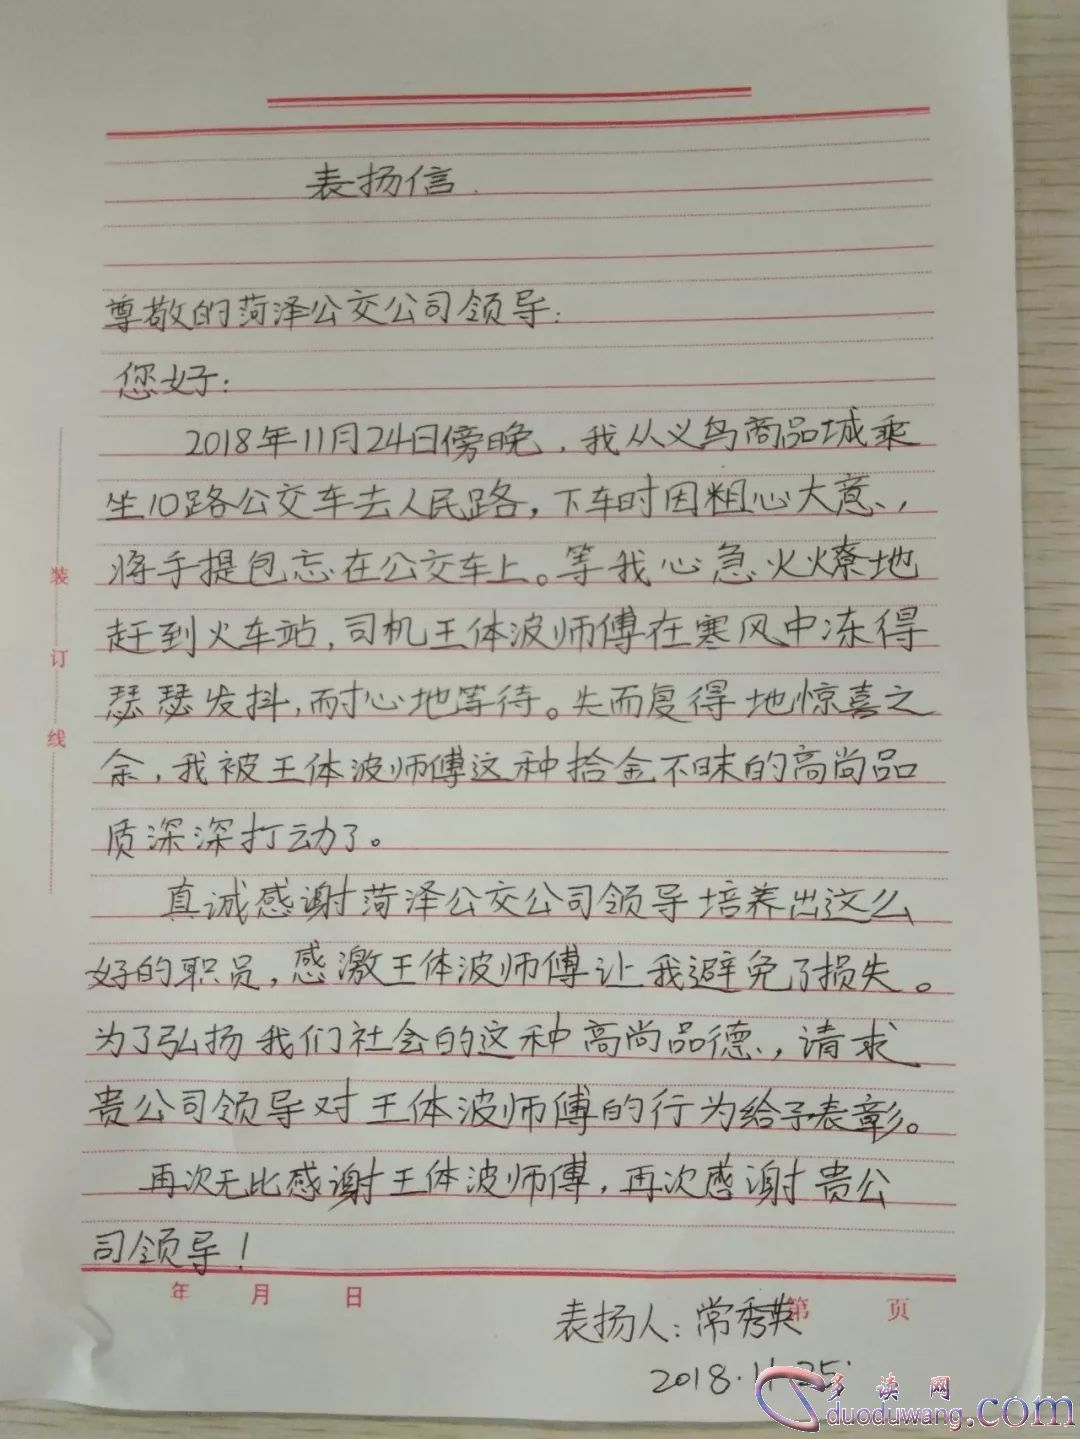 表扬信.
尊敬的菏泽公交公司领导:
您好:
2018年11月24日傍晚,我从义乌商品城乘
坐10路公交车去人民路,下车时因粗心大意,
将手提包忘在公交车上。等我心急火燎地
赶到火车站,司机王体波师傅在寒风中冻得
瑟瑟发抖,耐心地等待。失而复得地惊喜之
余,我被王体波师傅这种拾金不昧的高尚品
质深深打动了。
真诚感谢菏泽公交公司领导培养出这么
好的职员,感激王体波师傅让我避免了损失。
为了弘扬我们社会的这种高尚品德,请求
贵公司领导对王体波师傅的行为给予表彰。
再次无比感谢王体波师傅,再次感谢贵公
司领导!
年 月 日 第 页
表扬人:常秀英
2018.11.25
装
订
线
多读网
duoduwang.com